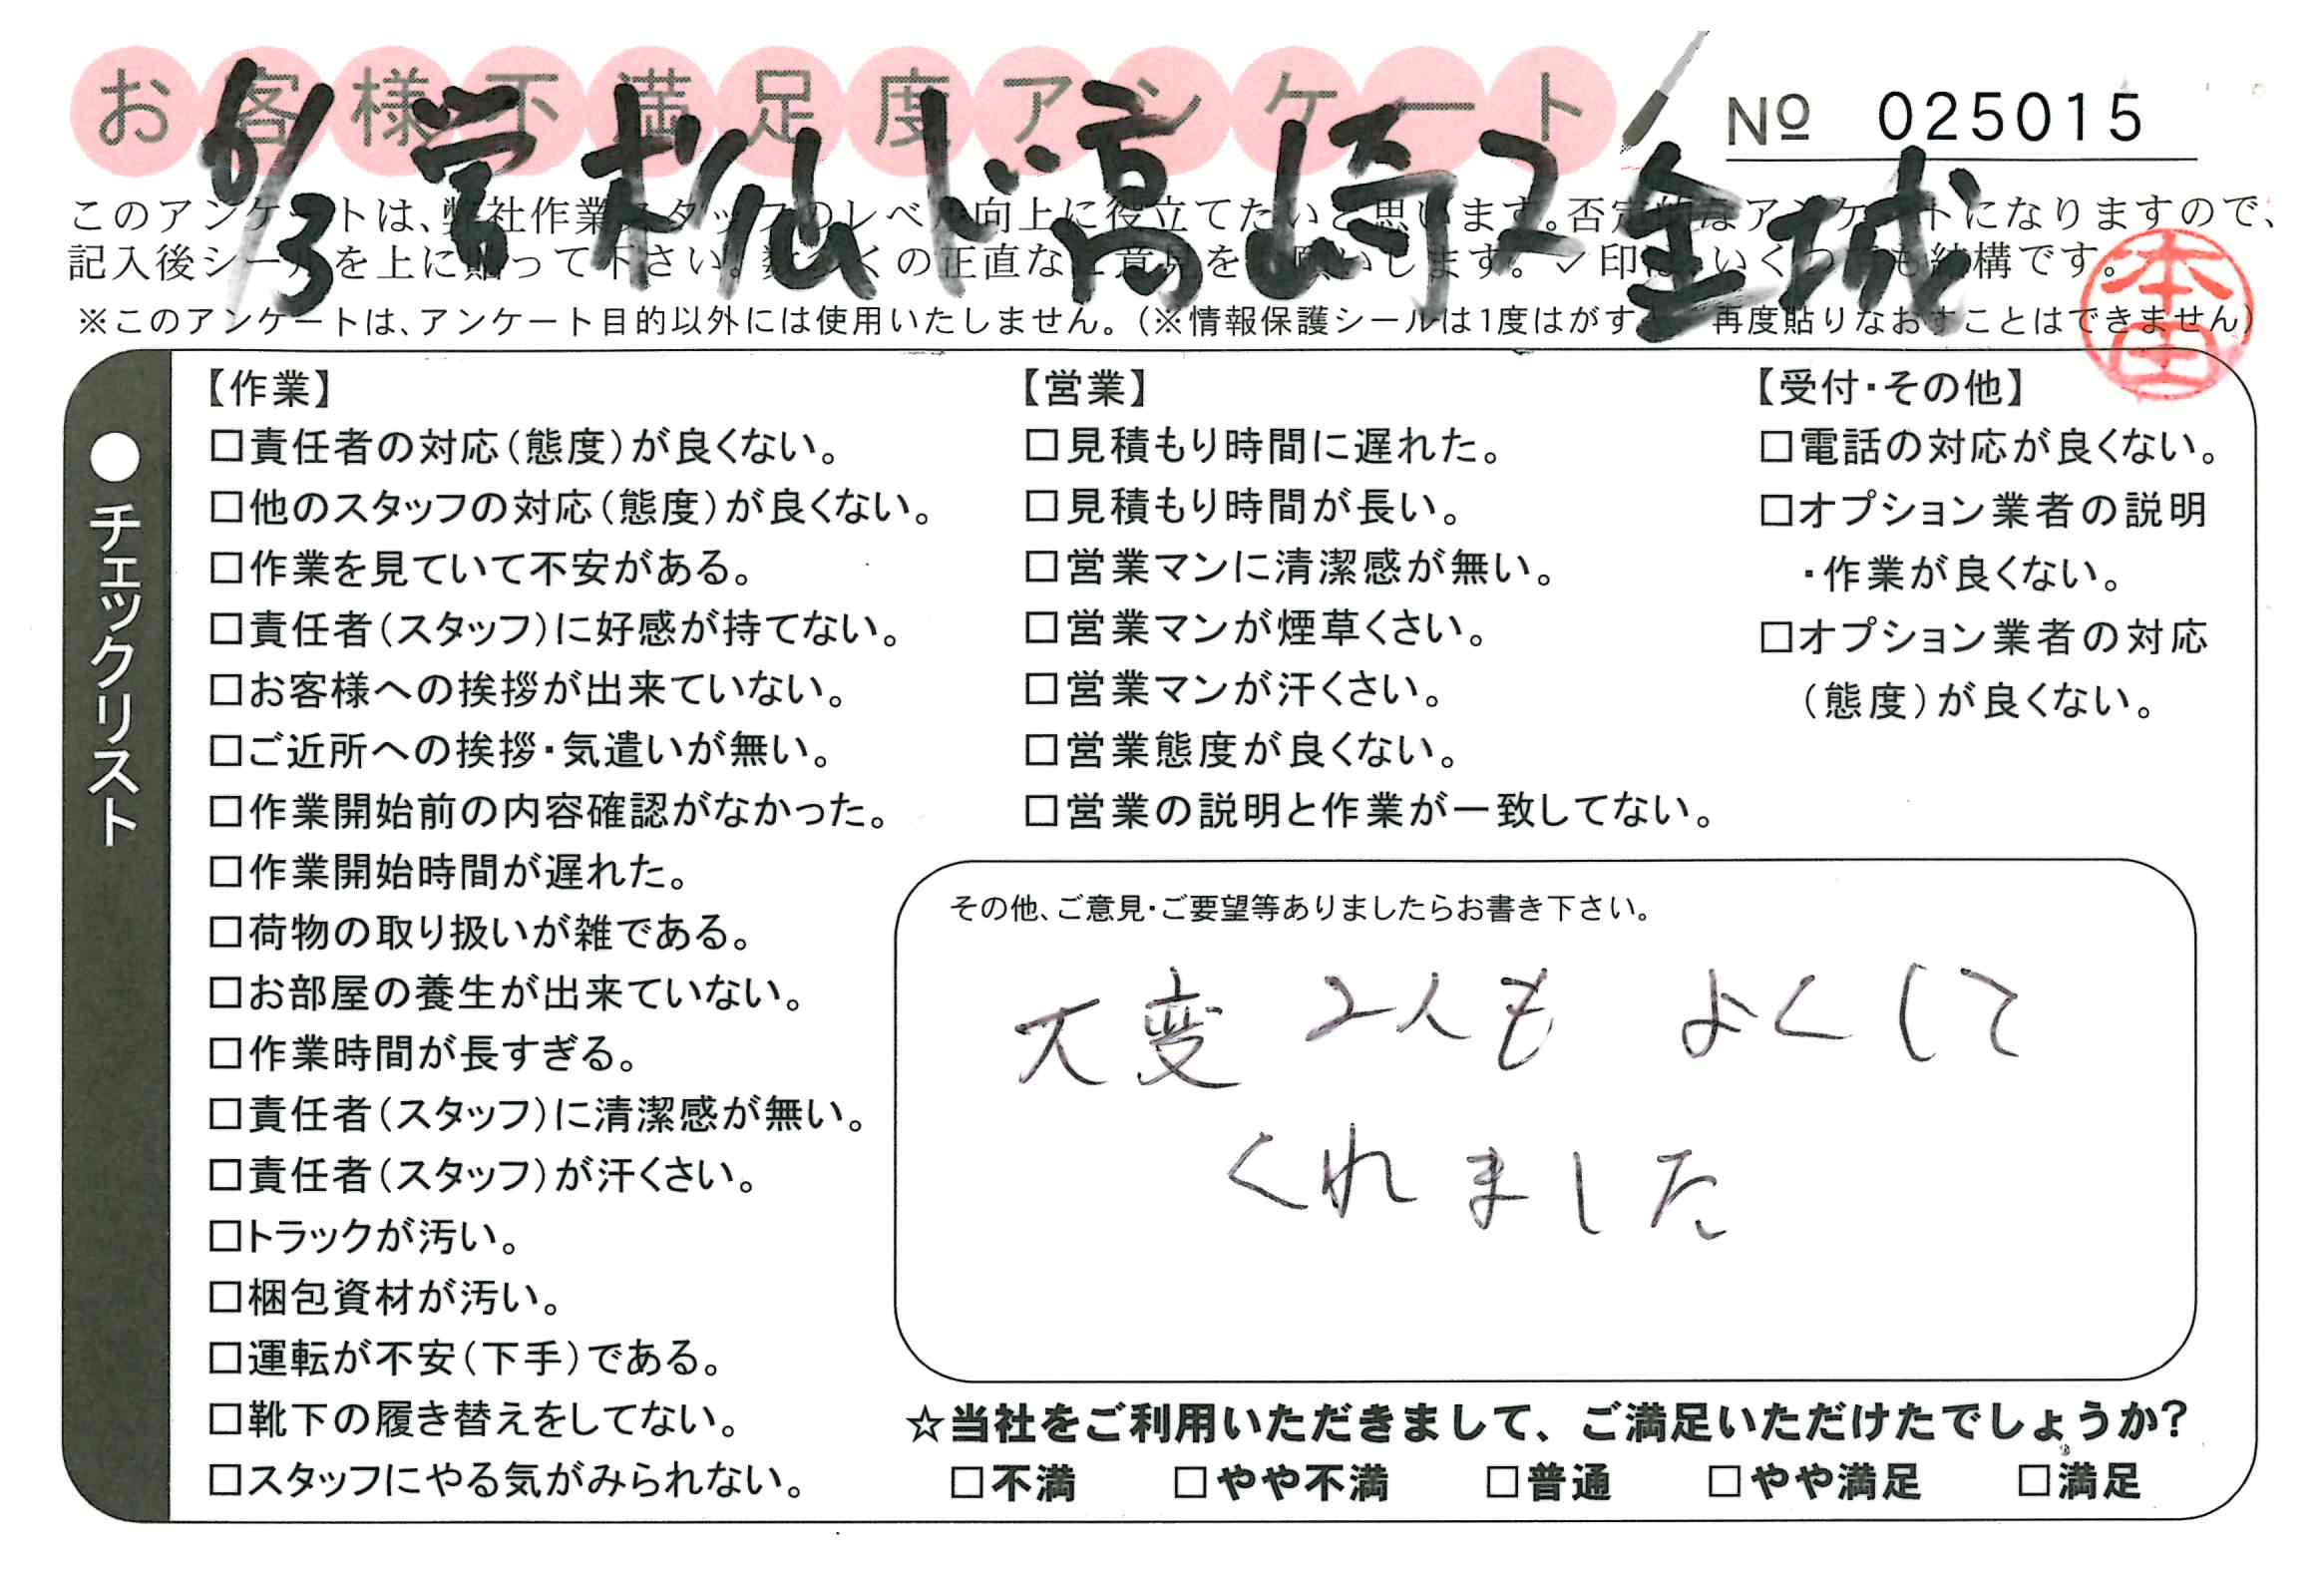 お客様不満足度アンケート
No 025015
6/3 営 松山 ド高崎 2 金城
このアンケートは、弊社作業スタッフのレベル向上に役立てたいと思います。否定的なアンケートになりますので、
記入後シールを上に貼って下さい。数多くの正直なご意見をお願いします。✓印は、いくつでも結構です。
※このアンケートは、アンケート目的以外には使用いたしません。(※情報保護シールは1度はがすと、再度貼りなおすことはできません)
本田
●チェックリスト
【作業】
□責任者の対応(態度)が良くない。
□他のスタッフの対応(態度)が良くない。
□作業を見ていて不安がある。
□責任者(スタッフ)に好感が持てない。
□お客様への挨拶が出来ていない。
□ご近所への挨拶・気遣いが無い。
□作業開始前の内容確認がなかった。
□作業開始時間が遅れた。
□荷物の取り扱いが雑である。
□お部屋の養生が出来ていない。
□作業時間が長すぎる。
□責任者(スタッフ)に清潔感が無い。
□責任者(スタッフ)が汗くさい。
□トラックが汚い。
□梱包資材が汚い。
□運転が不安(下手)である。
□靴下の履き替えをしてない。
□スタッフにやる気がみられない。
【営業】
□見積もり時間に遅れた。
□見積もり時間が長い。
□営業マンに清潔感が無い。
□営業マンが煙草くさい。
□営業マンが汗くさい。
□営業態度が良くない。
□営業の説明と作業が一致してない。
【受付・その他】
□電話の対応が良くない。
□オプション業者の説明
・作業が良くない。
□オプション業者の対応
(態度)が良くない。
その他、ご意見・ご要望等ありましたらお書き下さい。
大変 2人も よくして
くれました
☆当社をご利用いただきまして、ご満足いただけたでしょうか?
□不満 □やや不満 □普通 □やや満足 □満足